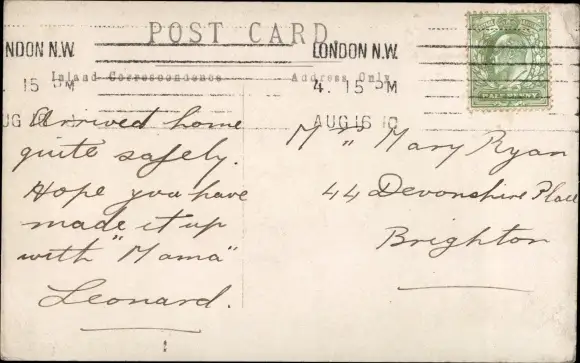 POST CARD
LONDON N.W. LONDON N.W.
Inland Correspondence Address Only
15 PM 4. 15 PM
AUG 16 10
Arrived home
quite safely.
Hope you have
made it up
with "Mama"
Leonard.
Mary Ryan
44 Devonshire Place
Brighton
HALFPENNY